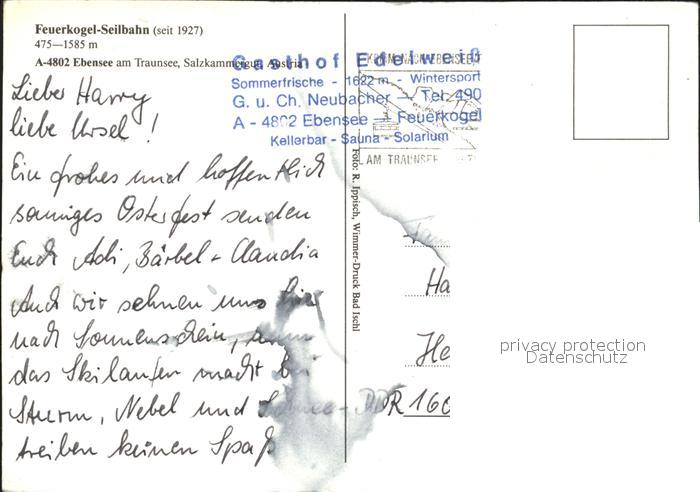 Feuerkogel-Seilbahn (seit 1927)
475—1585 m
A-4802 Ebensee am Traunsee, Salzkammergut, Austria
Gasthof Edelweiß
Sommerfrische - 1622 m - Wintersport
G. u. Ch. Neubacher - Tel. 490
A - 4802 Ebensee - Feuerkogel
Kellerbar - Sauna - Solarium
AM TRAUNSEE
Lieber Harry
liebe Ursel!
Ein frohes und hoffentlich
sonniges Osterfest senden
Euch Adi, Bärbel + Claudia
Auch wir sehnen uns hier
nach Sonnenschein, denn
das Skilaufen macht bei
Sturm, Nebel und Schnee-
treiben keinen Spaß
Foto: R. Ippisch, Wimmer-Druck Bad Ischl
Ha
He
DDR 160
privacy protection
Datenschutz